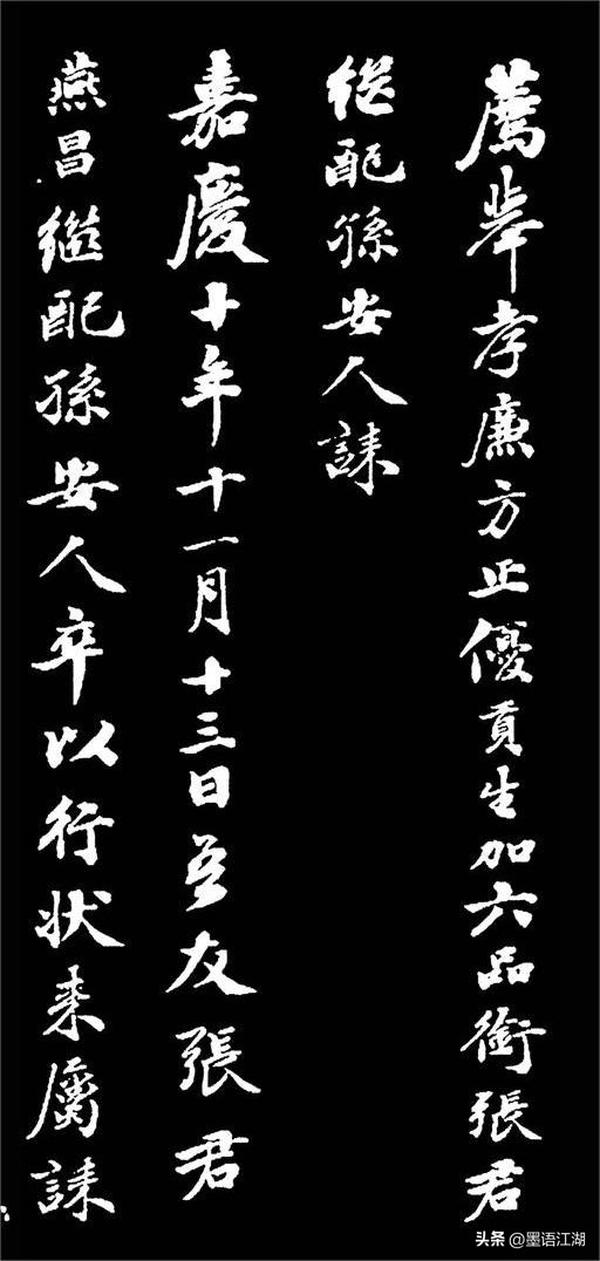 薦舉孝廉方正優貢生加六品銜張君
继配孫安人誄
嘉慶十年十一月十三日吾友張君
燕昌繼配孫安人卒以行状来屬誄
头条 @墨语江湖